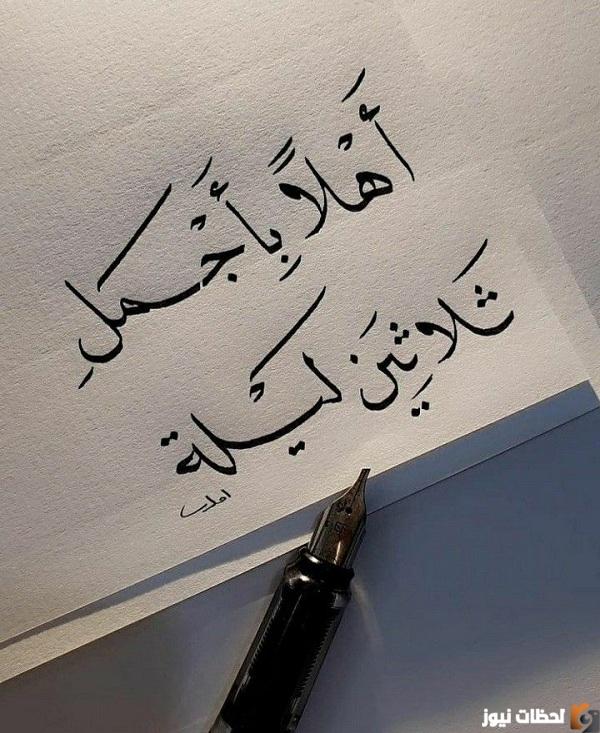 أَهْلاً بِأَجْمَلِ
ثَلاثِينَ لَيْلة
لحظات نيوز